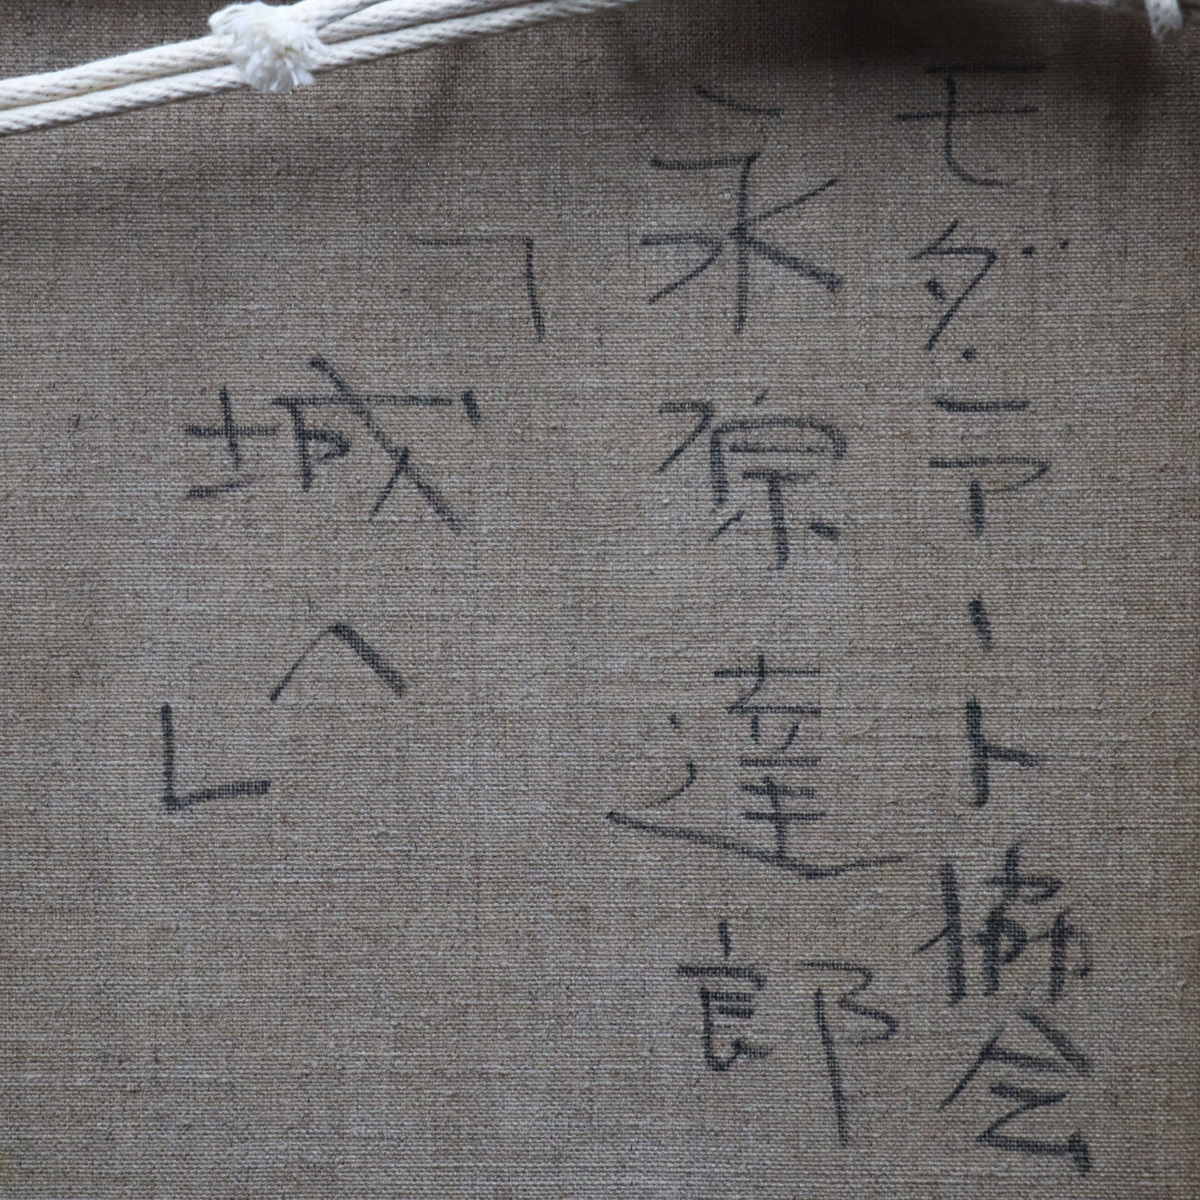 モダンアート協会
永原達郎
「城へ」